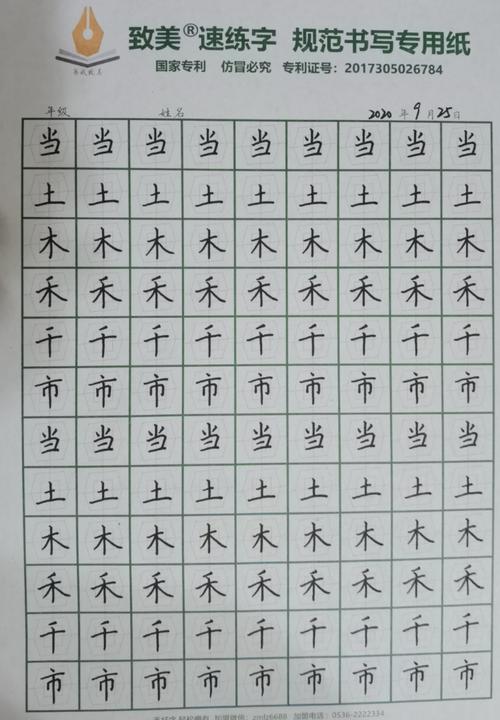 致美®速练字 规范书写专用纸
国家专利 仿冒必究 专利证号：2017305026784
年级 姓名 2020 年 9 月 25 日
当 当 当 当 当 当 当 当 当
土 土 土 土 土 土 土 土 土
木 木 木 木 木 木 木 木 木
禾 禾 禾 禾 禾 禾 禾 禾 禾
千 千 千 千 千 千 千 千 千
市 市 市 市 市 市 市 市 市
当 当 当 当 当 当 当 当 当
土 土 土 土 土 土 土 土 土
木 木 木 木 木 木 木 木 木
禾 禾 禾 禾 禾 禾 禾 禾 禾
千 千 千 千 千 千 千 千 千
市 市 市 市 市 市 市 市 市
加盟微信：zmlz6688 加盟电话：0536-2222334